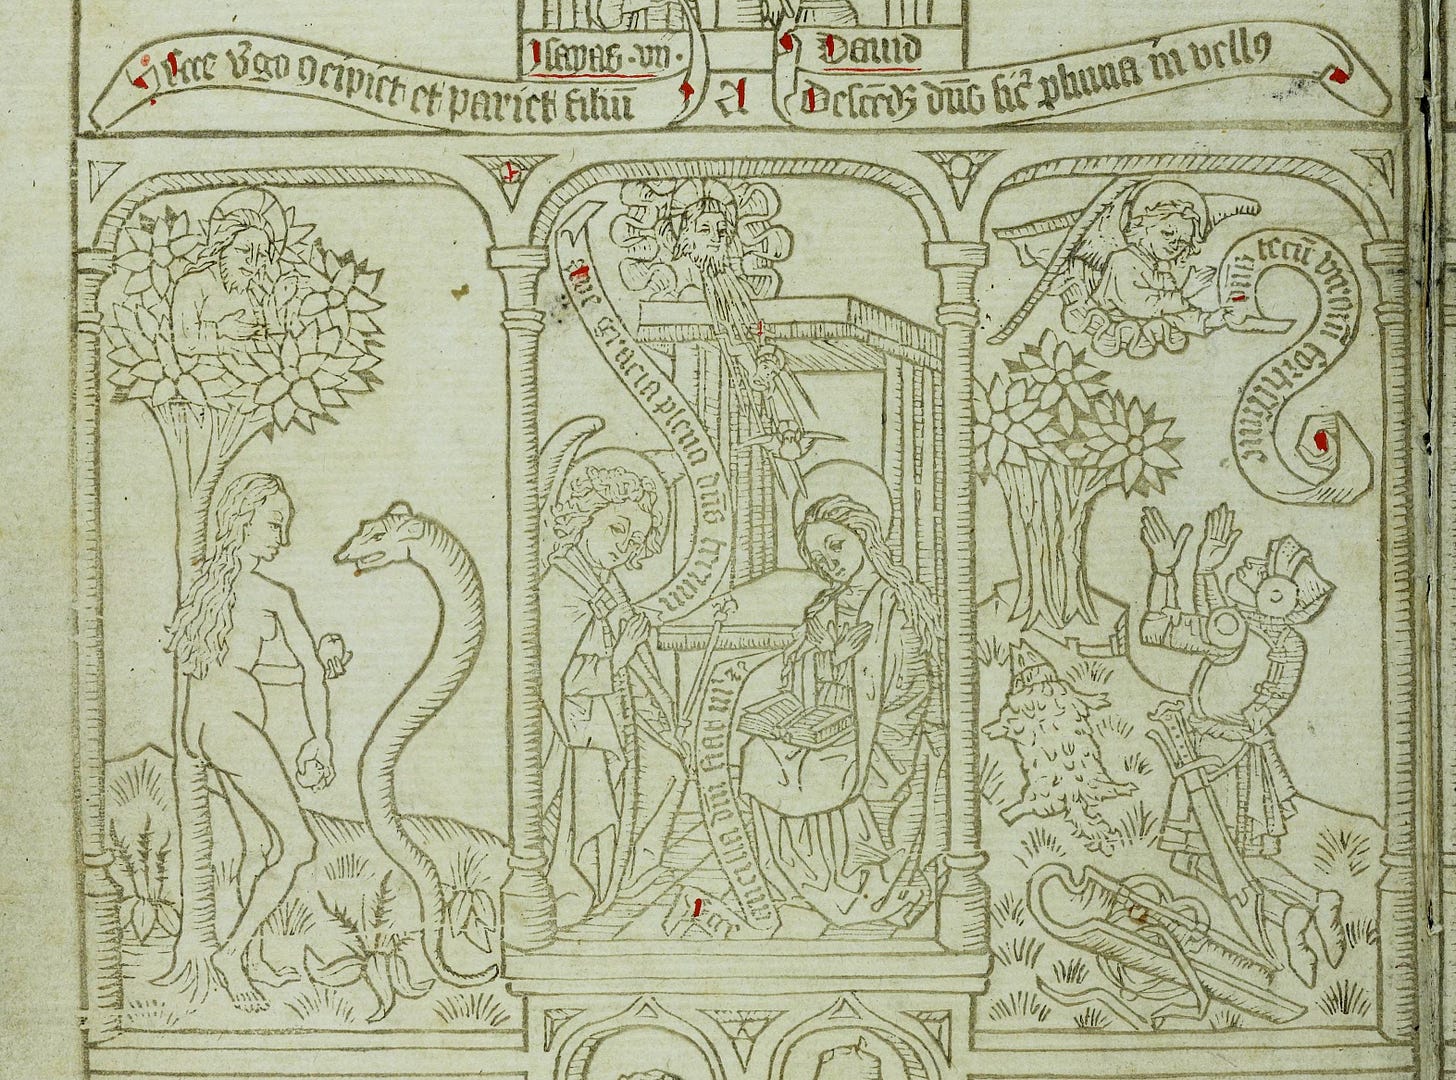 Ysayas · vii ·
Dauid
Ecce v̾go ꝯcipiet et pariet filiū
A
Descēdꝫ dn̄s sic̄ pluuia in vellꝰ
Aue gracia plena dn̄s tecum
dn̄s tecū viroꝝ fortissime
Ecce ancilla dn̄i fiat m